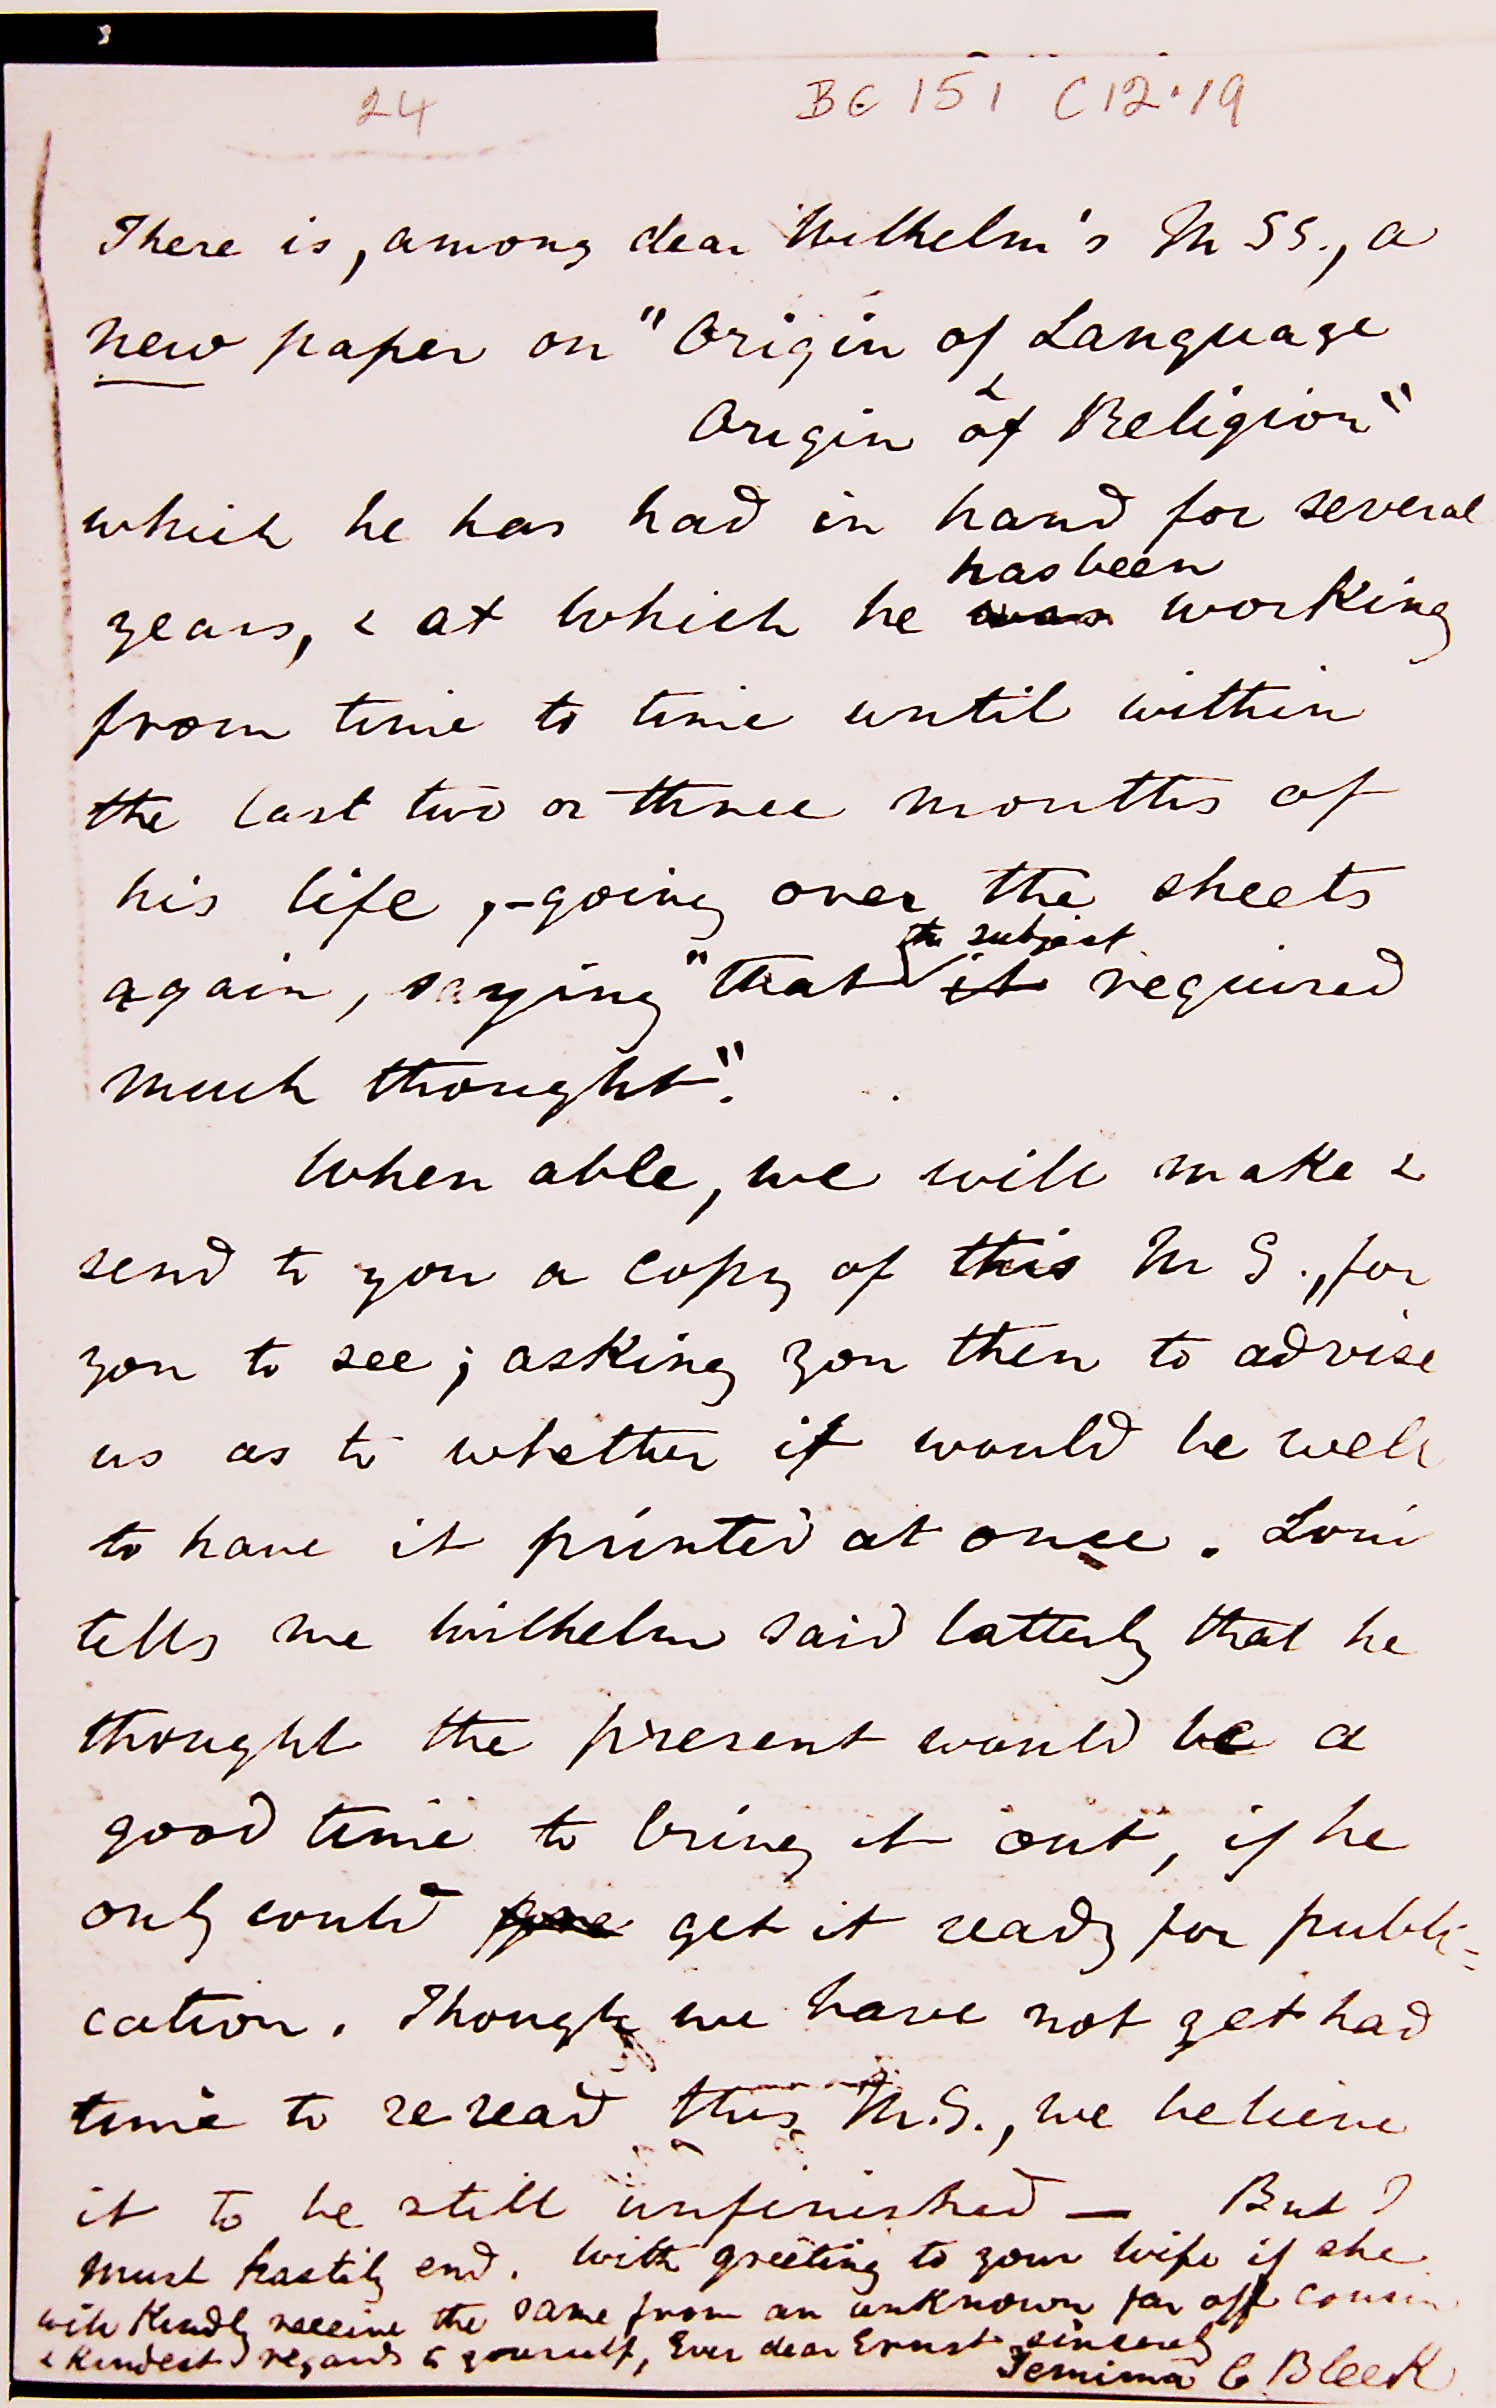 24
BC 151 C12.19
There is, among dear Wilhelm's MSS., a
new paper on "Origin of Language
&
Origin of Religion"
which he has had in hand for several
has been
years, & at which he was working
from time to time until within
the last two or three months of
his life, - going over the sheets
the subject
again, saying "that it required
much thought".
When able, we will make &
send to you a copy of this MS., for
you to see; asking you then to advise
us as to whether it would be well
to have it printed at once. Loui
tells me Wilhelm said latterly that he
thought the present would be a
good time to bring it out, if he
only could get it ready for publi=
cation. Though we have not yet had
time to reread this M.S., we believe
it to be still unfinished — But I
must hastily end. With greeting to your wife if she
will kindly receive the same from an unknown far off cousin
& kindest regards to yourself, Ever dear Ernst sincerely
Jemima C. Bleek